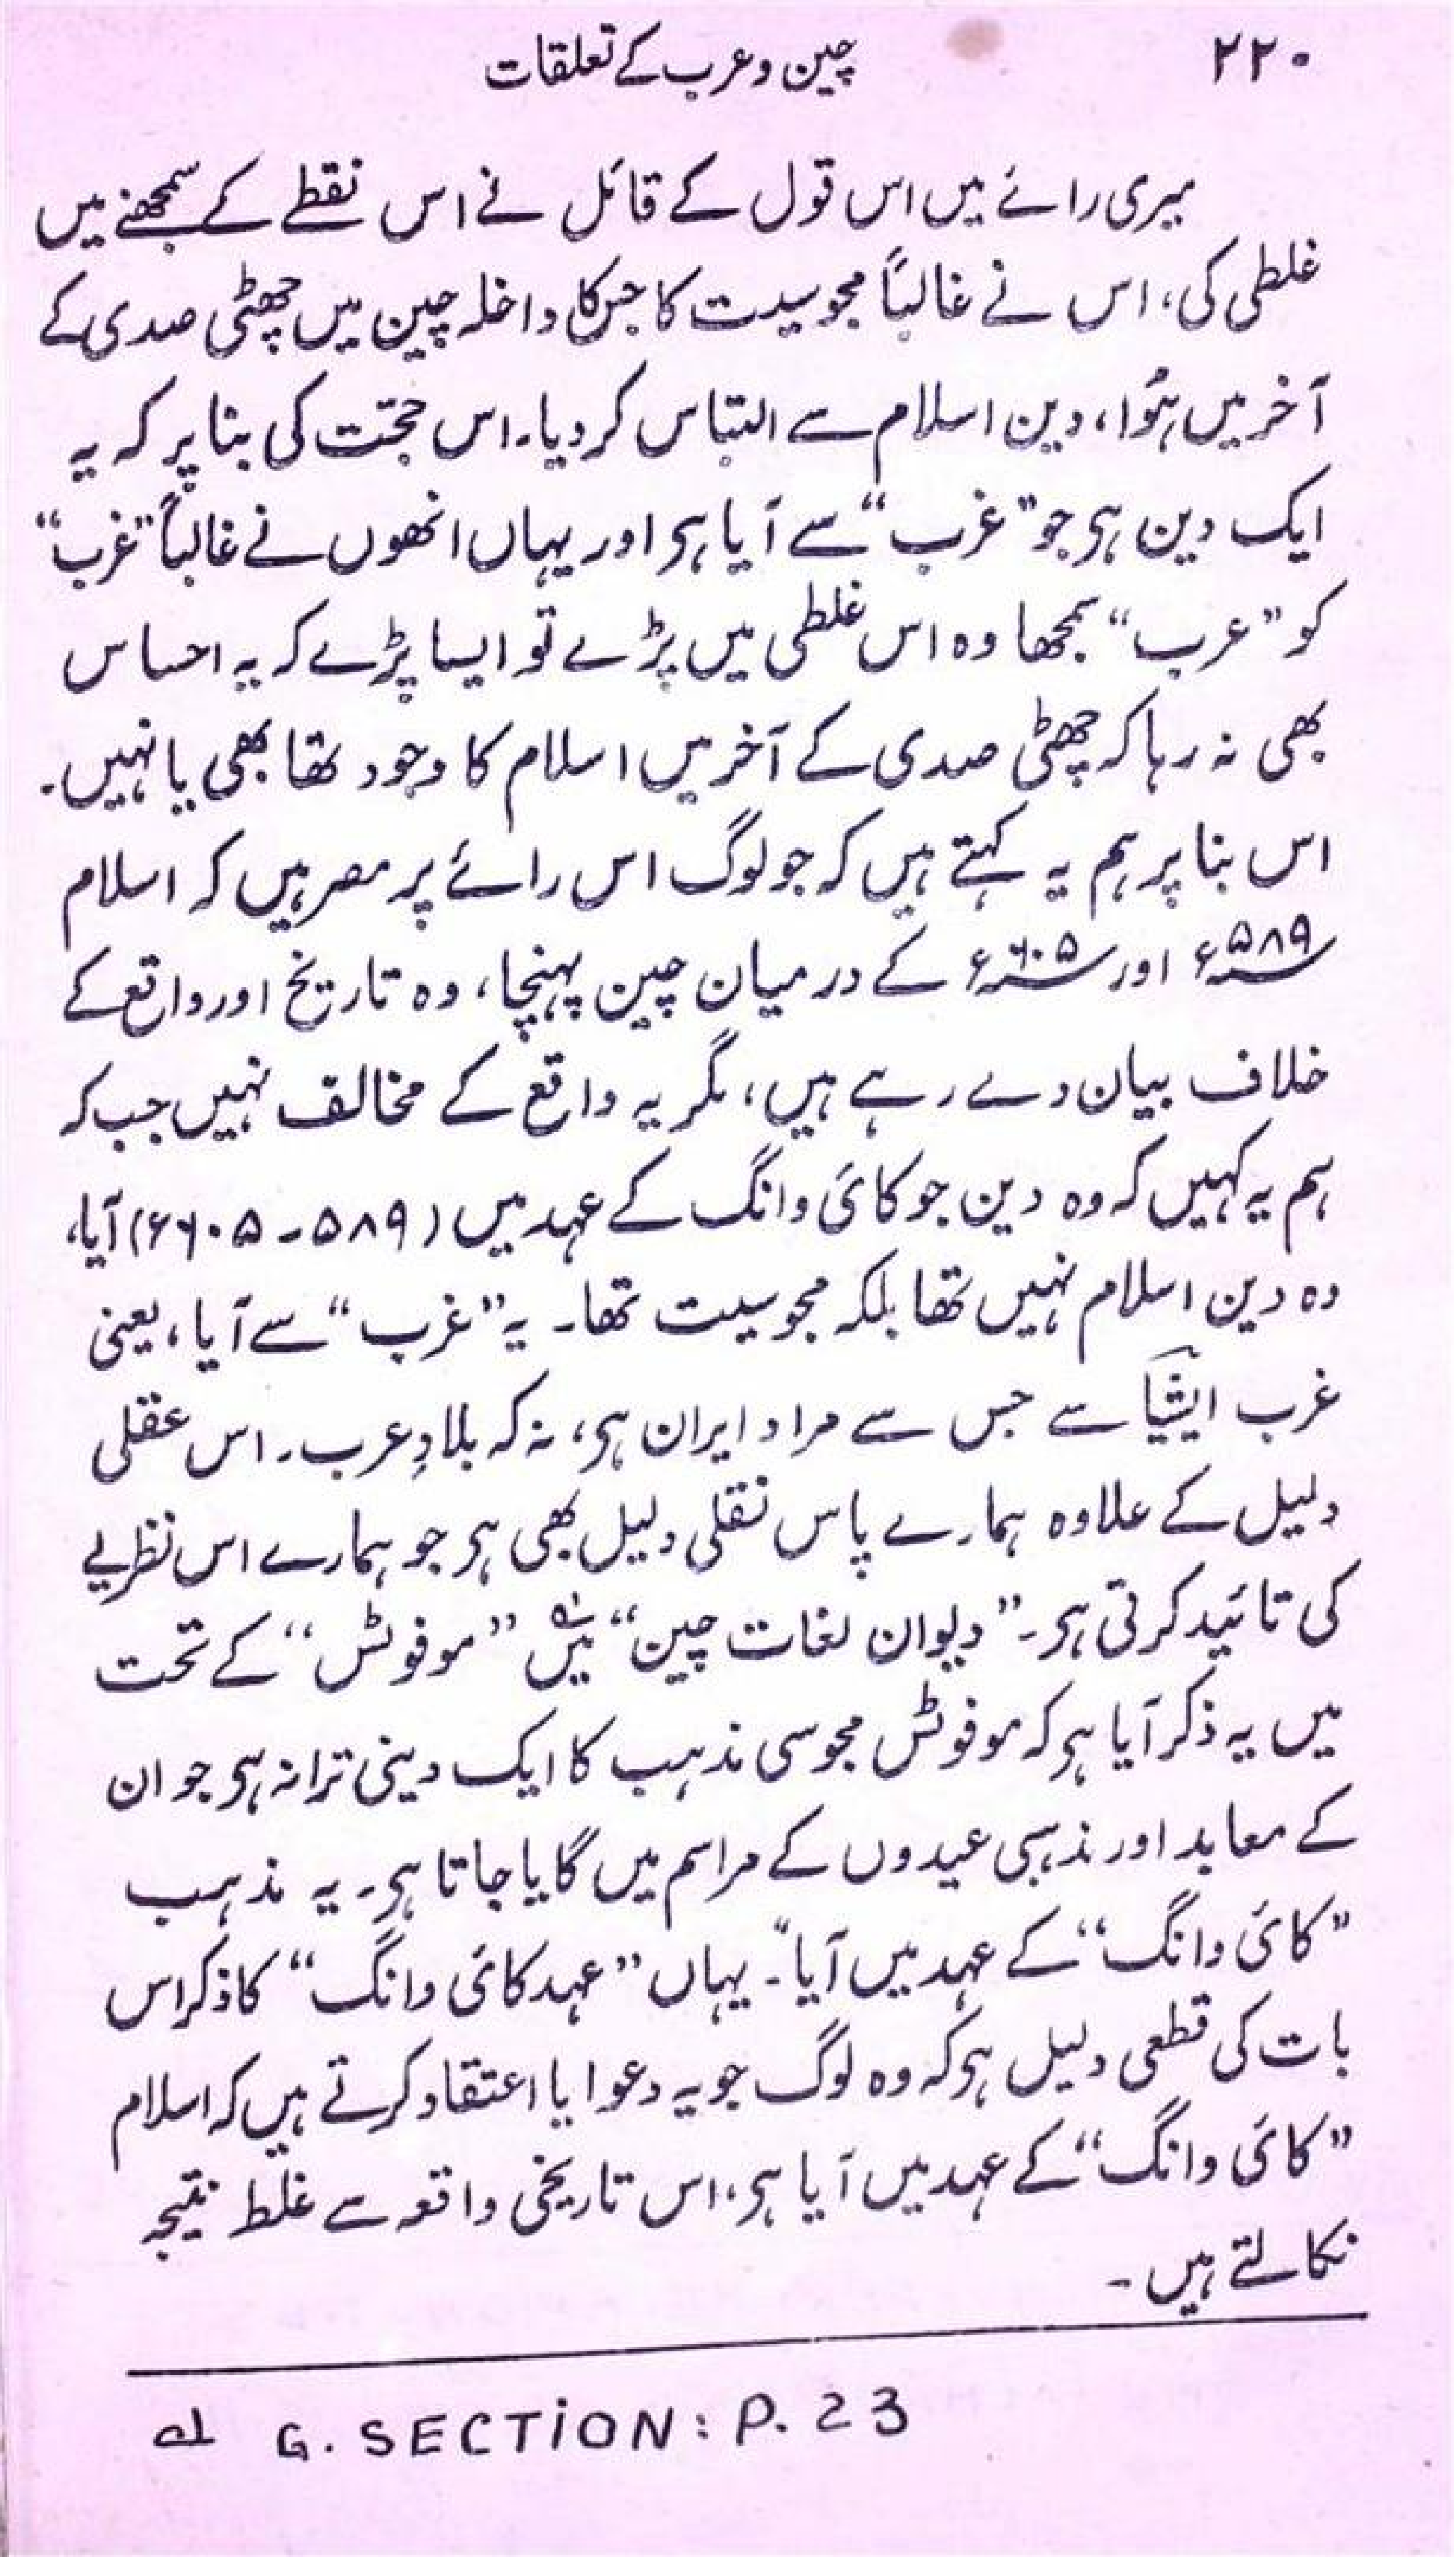 ۲۲۰
چین و عرب کے تعلقات
میری رائے میں اس قول کے قائل نے اس نقطے کے سمجھنے میں
غلطی کی، اس نے غالباً مجوسیت کا جس کا داخلہ چین میں چھٹی صدی کے
آخر میں ہُوا، دین اسلام سے التباس کر دیا۔ اس حجّت کی بنا پر کہ یہ
ایک دین ہی جو ”غرب“ سے آیا ہی اور یہاں انھوں نے غالباً ”غرب“
کو ”عرب“ سمجھا وہ اس غلطی میں پڑے تو ایسا پڑے کہ یہ احساس
بھی نہ رہا کہ چھٹی صدی کے آخر میں اسلام کا وجود تھا بھی یا نہیں۔
اس بنا پر ہم یہ کہتے ہیں کہ جو لوگ اس رائے پر مصر ہیں کہ اسلام
۵۸۹ء اور ۶۰۵ء کے درمیان چین پہنچا، وہ تاریخ اور واقع کے
خلاف بیان دے رہے ہیں، مگر یہ واقع کے مخالف نہیں جب کہ
ہم یہ کہیں کہ وہ دین جو کائ وانگ کے عہد میں (۵۸۹ - ۶۰۵ء) آیا،
وہ دین اسلام نہیں تھا بلکہ مجوسیت تھا۔ یہ ”غرب“ سے آیا، یعنی
غرب ایشیا سے جس سے مراد ایران ہی، نہ کہ بلادِ عرب۔ اس عقلی
دلیل کے علاوہ ہمارے پاس نقلی دلیل بھی ہی جو ہمارے اس نظریے
کی تائید کرتی ہی۔ ”دیوان لغات چین“ میں ؎۱ ”موفوٹس“ کے تحت
میں یہ ذکر آیا ہی کہ موفوٹس مجوسی مذہب کا ایک دینی ترانہ ہی جو ان
کے معابد اور مذہبی عیدوں کے مراسم میں گایا جاتا ہی۔ یہ مذہب
”کائ وانگ“ کے عہد میں آیا“۔ یہاں ”عہد کائ وانگ“ کا ذکر اس
بات کی قطعی دلیل ہی کہ وہ لوگ جو یہ دعوا یا اعتقاد کرتے ہیں کہ اسلام
”کائ وانگ“ کے عہد میں آیا ہی، اس تاریخی واقعہ سے غلط نتیجہ
نکالتے ہیں۔
؎۱ G. SECTION: P. 23